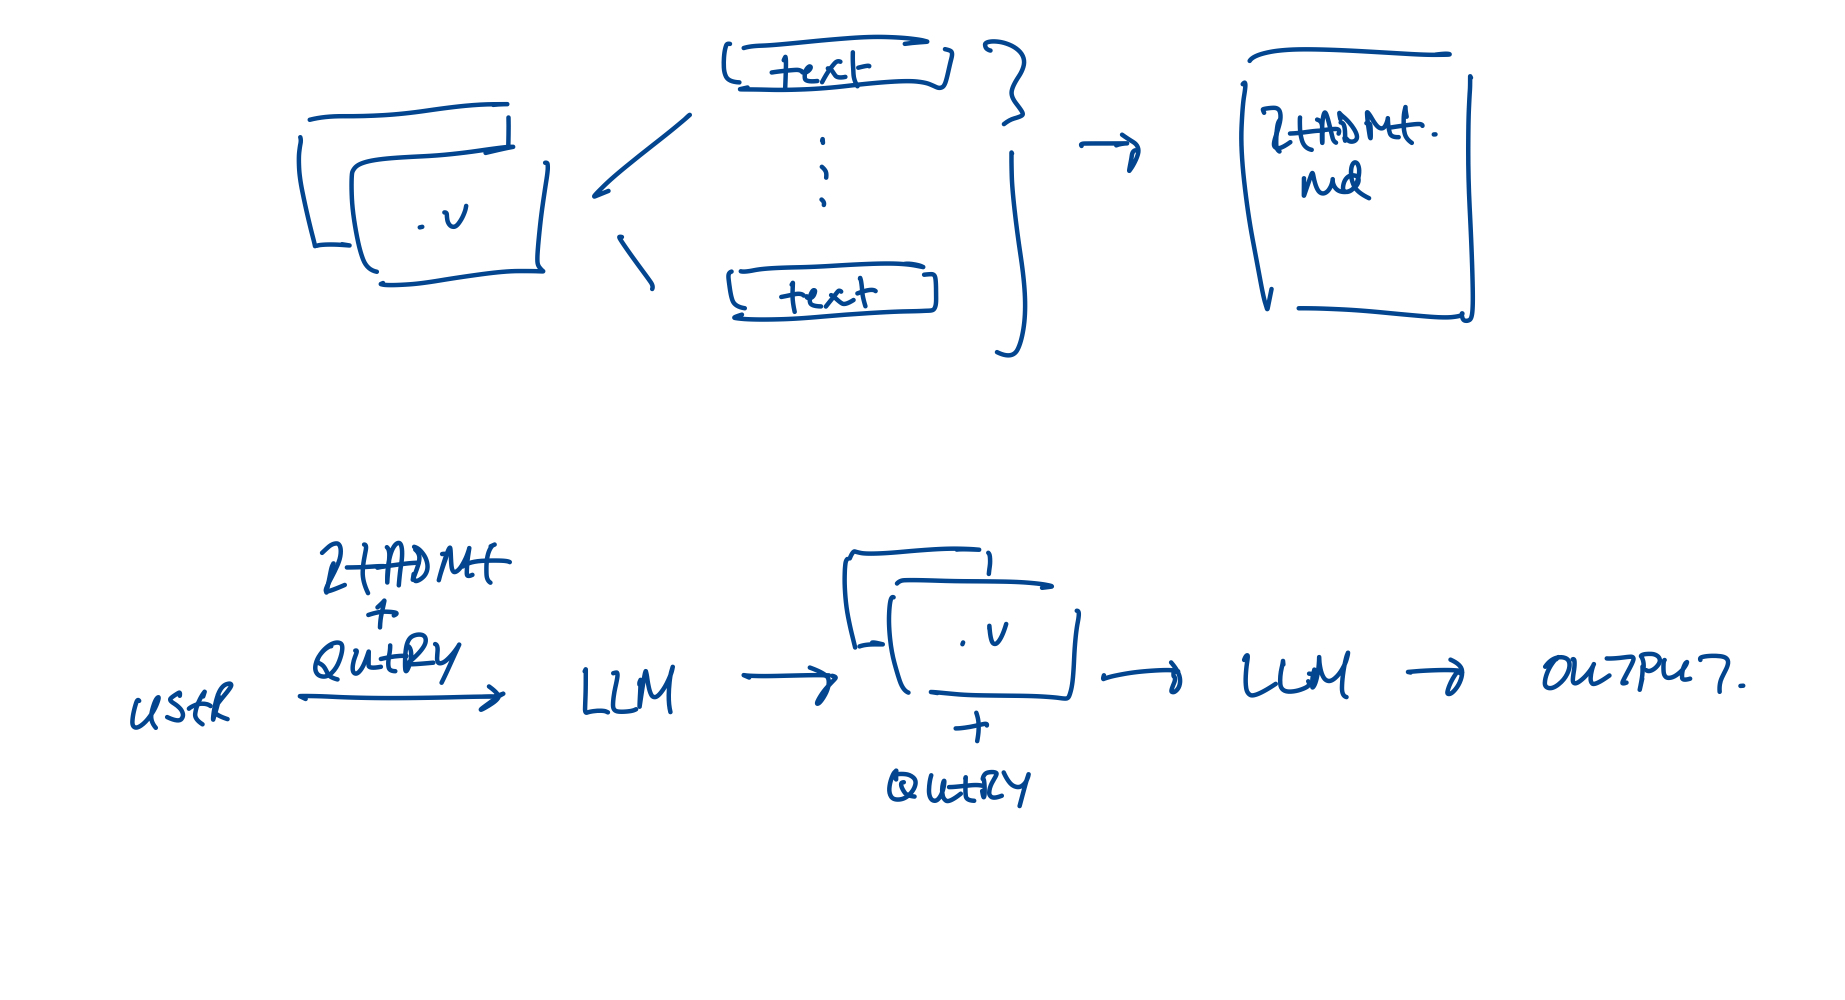 text
.v
text
README.
md
README
+
QUERY
USER
LLM
.v
+
QUERY
LLM
OUTPUT.